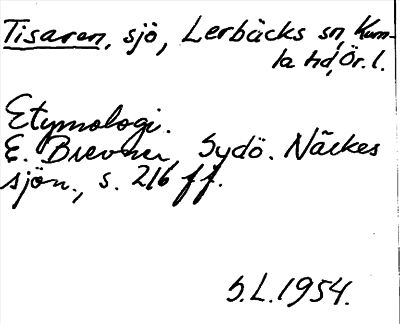 Tisaren, sjö, Lerbäcks sn, Kum-
la hd, Ör. l.
Etymologi.
E. Brevner, Sydö. Närkes
sjön., s. 216 ff.
S.L. 1954.